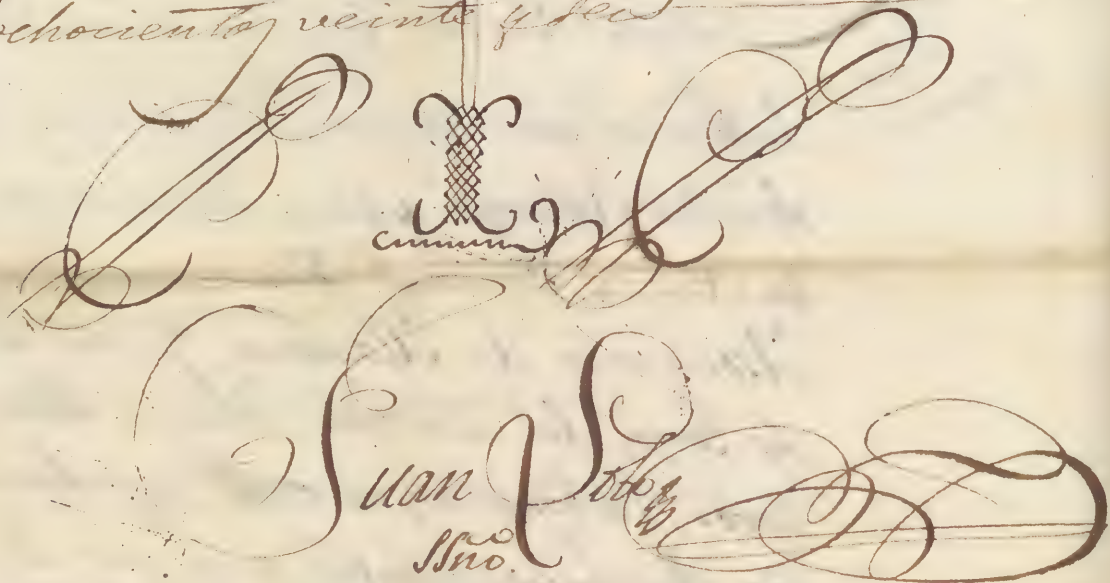 ochocientos veinte y seis
Juan
SSno.